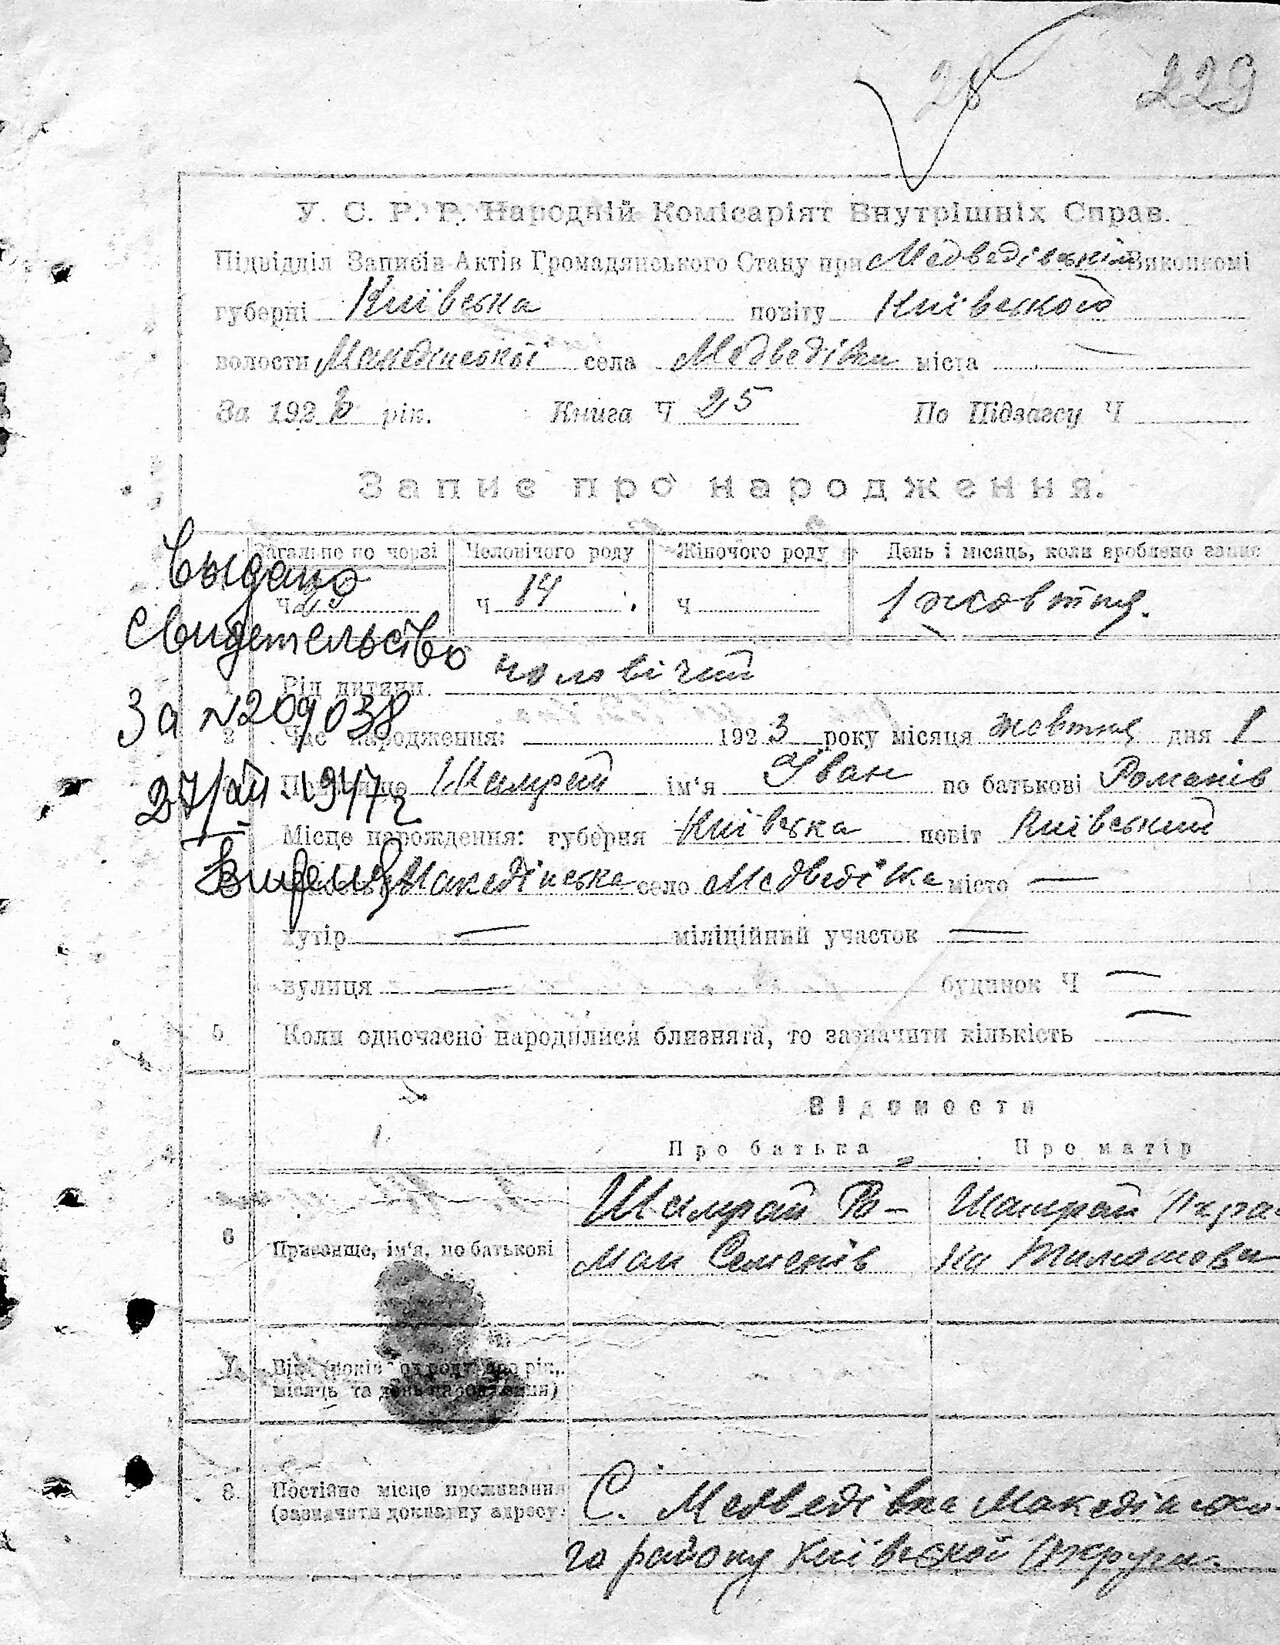 28 229
У. С. Р. Р. Народній Комісаріят Внутрішніх Справ.
Підвідділ Записів Актів Громадянського Стану при Медведівськім Виконкомі
губерні Київська повіту Київського
волости Македінської села Медведівки міста —
За 1923 рік. Книга Ч 25 По Підзагсу Ч
Запис про народження.
Загальне по черзі Человічого роду Жіночого роду День і місяць, коли зроблено запис
Ч ч 14 ч 1 жовтня.
Выдано
свидетельство
За № 209038
27/VII - 1947 г
1 Рід дитини. чоловічий
2 Час народження: 1923 року місяця жовтня дня 1
Шамрай ім'я Іван по батькові Романів
Місце народження: губерня Київська повіт Київський
Македінська село Медведівка місто —
хутір — міліційний участок —
вулиця — будинок Ч —
5 Коли одночасно народилися близнята, то зазначити кількість —
Відомости
Про батька Про матір
6 Призвище, ім'я, по батькові
Шамрай Ро-
ман Семенів
Шамрай
на Тимошова
7. Вік (років од роду або рік,
місяць та день народження)
8. Постійне місце проживання
(зазначити докладну адресу.
С. Медведівка Македінско-
го району Київської Округи.